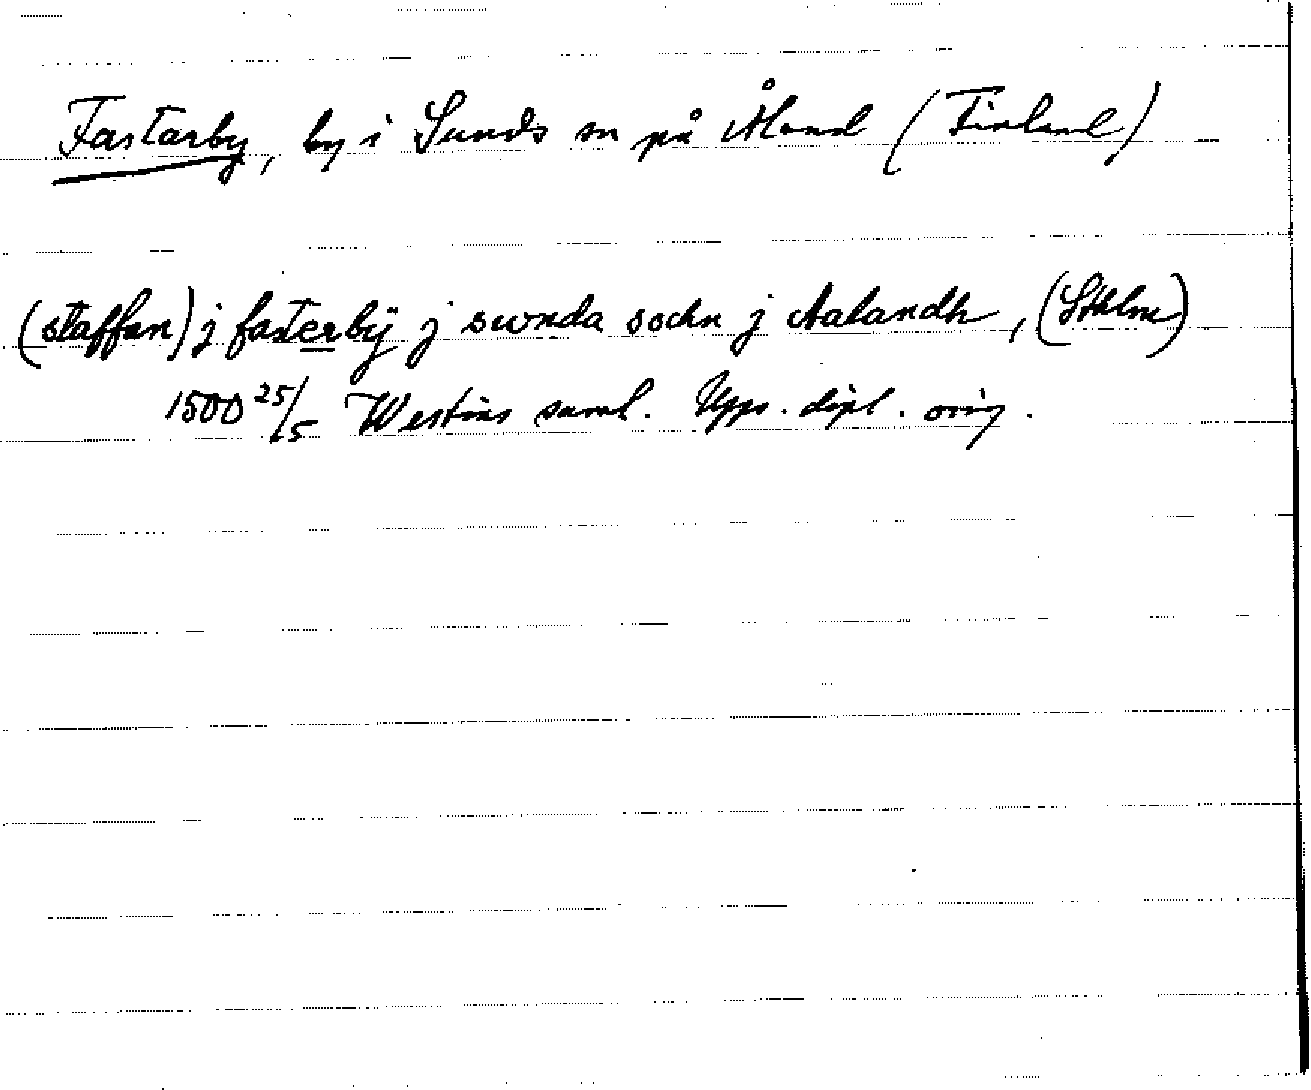 Fastarby, by i Sunds sn på Åland (Finland)
(staffan) j fasterbÿ j swnda sochn j Aalandh, (Sthlm)
1500 25/5 Westins saml. Upps. dipl. orig.